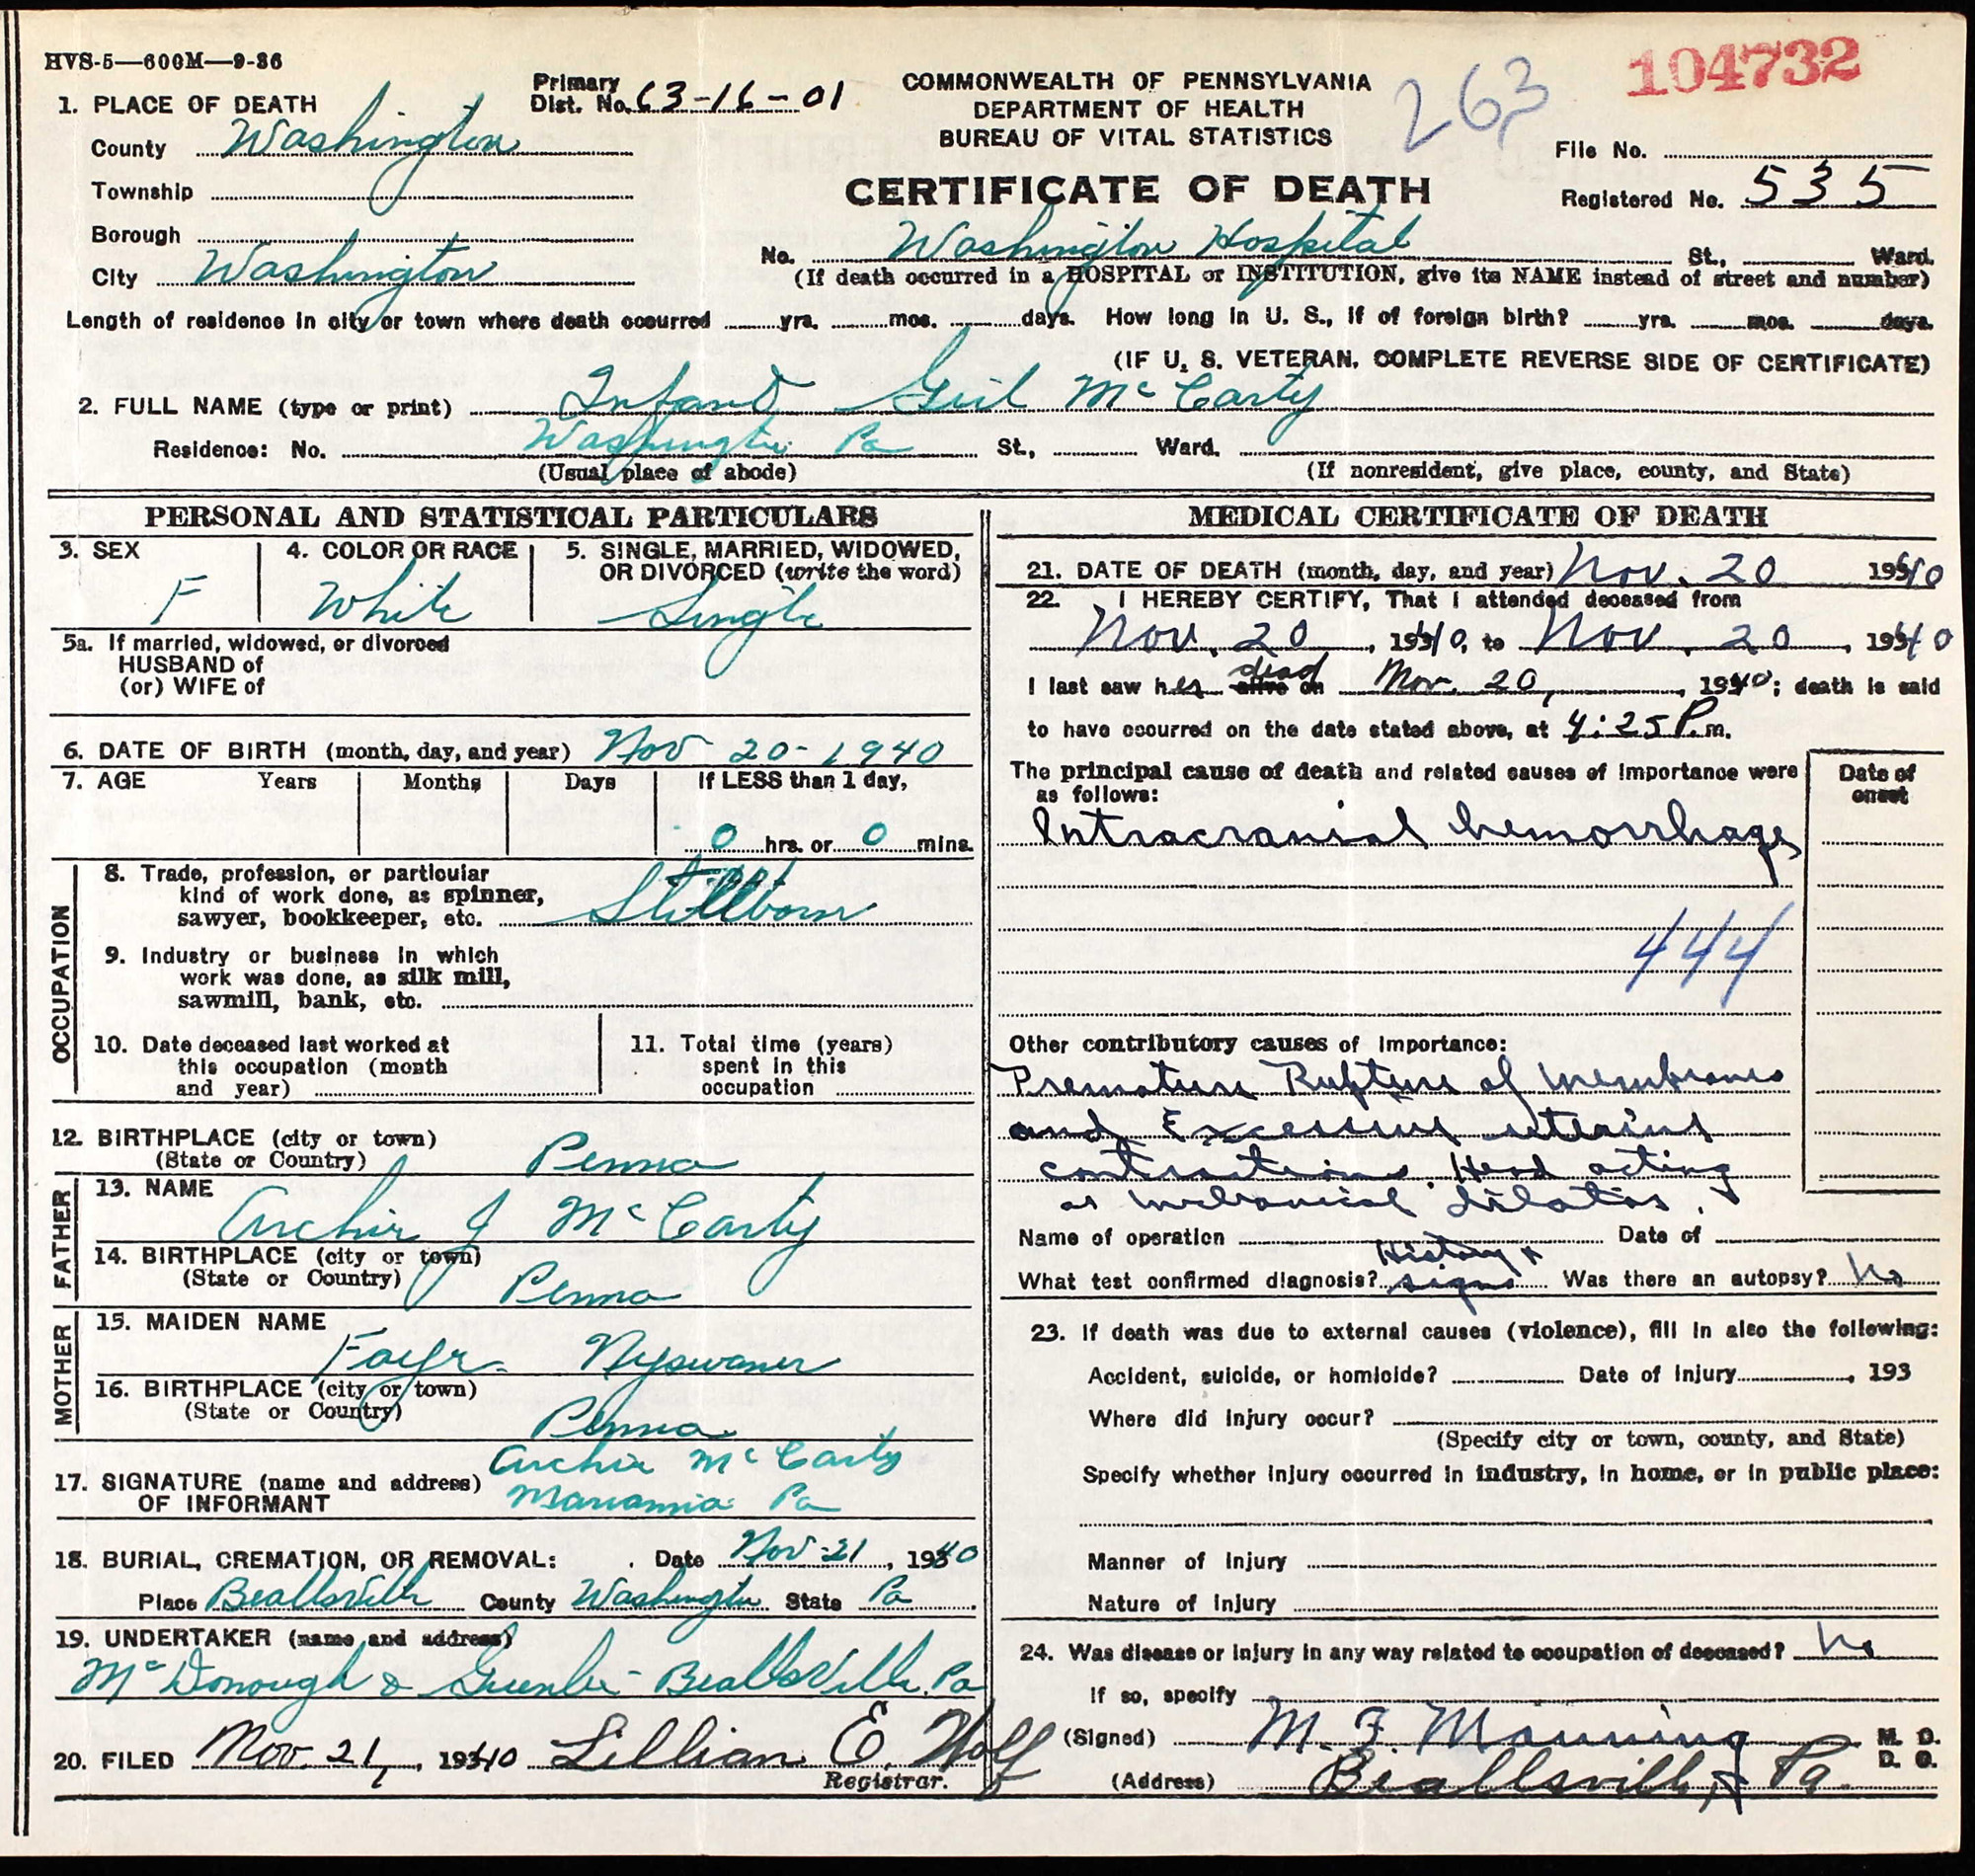 HVS-5—600M—9-36
104732
263
Primary Dist. No. 63-16-01
COMMONWEALTH OF PENNSYLVANIA
DEPARTMENT OF HEALTH
BUREAU OF VITAL STATISTICS
CERTIFICATE OF DEATH
File No.
Registered No. 535
1. PLACE OF DEATH
County Washington
Township
Borough
City Washington
No. Washington Hospital St., Ward.
(If death occurred in a HOSPITAL or INSTITUTION, give its NAME instead of street and number)
Length of residence in city or town where death occurred yrs. mos. days. How long in U. S., if of foreign birth? yrs. mos. days.
(IF U. S. VETERAN, COMPLETE REVERSE SIDE OF CERTIFICATE)
2. FULL NAME (type or print) Infant Girl McCarty
Residence: No. Washington Pa St., Ward.
(Usual place of abode) (If nonresident, give place, county, and State)
PERSONAL AND STATISTICAL PARTICULARS
3. SEX F
4. COLOR OR RACE White
5. SINGLE, MARRIED, WIDOWED, OR DIVORCED (write the word) Single
5a. If married, widowed, or divorced
HUSBAND of
(or) WIFE of
6. DATE OF BIRTH (month, day, and year) Nov 20-1940
7. AGE Years Months Days If LESS than 1 day,
0 hrs. or 0 mins.
OCCUPATION
8. Trade, profession, or particular
kind of work done, as spinner,
sawyer, bookkeeper, etc. Stillborn
9. Industry or business in which
work was done, as silk mill,
sawmill, bank, etc.
10. Date deceased last worked at
this occupation (month
and year)
11. Total time (years)
spent in this
occupation
12. BIRTHPLACE (city or town)
(State or Country) Penna
FATHER
13. NAME Archie J McCarty
14. BIRTHPLACE (city or town)
(State or Country) Penna
MOTHER
15. MAIDEN NAME Faye Nyswaner
16. BIRTHPLACE (city or town)
(State or Country) Penna
17. SIGNATURE (name and address) Archie McCarty
OF INFORMANT Marianna Pa
18. BURIAL, CREMATION, OR REMOVAL: Date Nov-21, 1940
Place Beallsville County Washington State Pa
19. UNDERTAKER (name and address)
McDonough & Beallsville, Pa
20. FILED Nov. 21, 1940 Lillian E. Wolf
Registrar.
MEDICAL CERTIFICATE OF DEATH
21. DATE OF DEATH (month, day, and year) Nov. 20 1940
22. I HEREBY CERTIFY, That I attended deceased from
Nov. 20, 1940, to Nov. 20, 1940
I last saw her alive dead on Nov. 20, 1940; death is said
to have occurred on the date stated above, at 4:25 P.m.
The principal cause of death and related causes of importance were
as follows:
Date of onset
Intracranial hemorrhage
444
Other contributory causes of importance:
Premature Rupture of membranes
and Excessive uterine
contractions. Head acting
as mechanical dilator.
Name of operation Date of
What test confirmed diagnosis? History & signs Was there an autopsy? No
23. If death was due to external causes (violence), fill in also the following:
Accident, suicide, or homicide? Date of injury, 193
Where did injury occur?
(Specify city or town, county, and State)
Specify whether injury occurred in industry, in home, or in public place:
Manner of injury
Nature of injury
24. Was disease or injury in any way related to occupation of deceased? No
If so, specify
(Signed) M. F. Manning M. D.
D. O.
(Address) Beallsville, Pa.